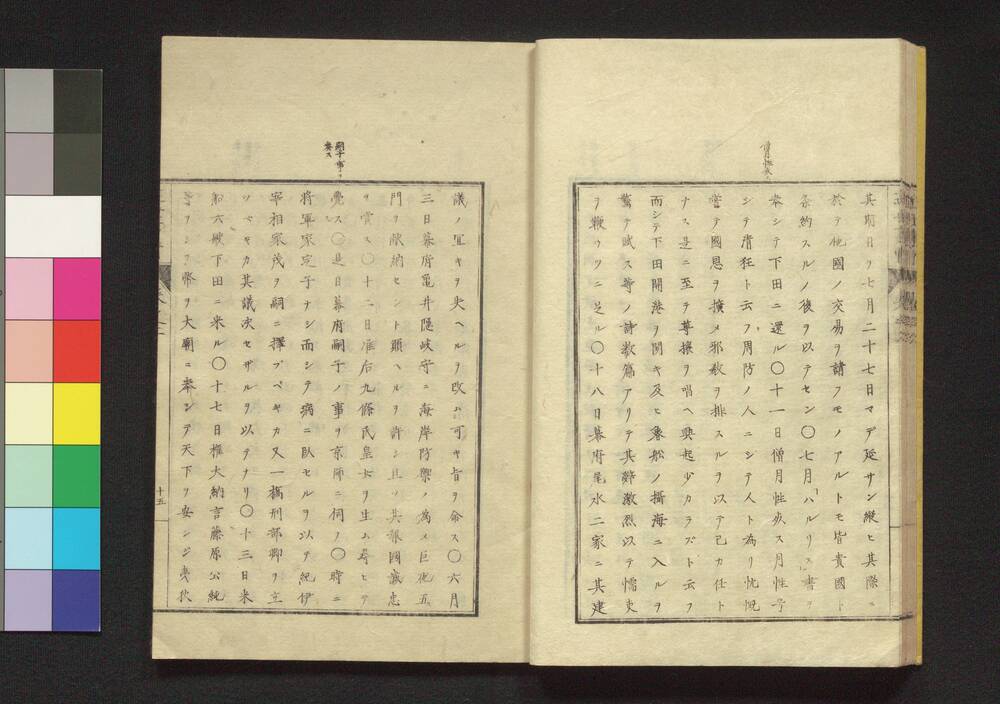 僧月性寂ス
其期日ヲ七月二十七日マデ延サン縦ヒ其際ニ
於テ他國ノ交易ヲ請フモノアルトモ皆貴國ト
条約スルノ後ヲ以テセン〇七月ハルリス書ヲ
奉シテ下田ニ還ル〇十一日僧月性寂ス月性号
シテ清狂ト云フ周防ノ人ニシテ人ト為リ忼慨
嘗テ國恩ヲ擴メ邪教ヲ排スルヲ以テ己カ任ト
ナス是ニ至テ尊攘ヲ唱ヘ興起少カラズト云フ
而シテ下田開港ヲ聞キ及ヒ魯船ノ攝海ニ入ルヲ
驚テ賦ス等ノ詩数篇アリテ其辭激烈以テ懦吏
ヲ鞭ウツニ足ル〇十八日幕府尾水二家ニ其建
嗣子ノ事ヲ
奏ス
議ノ宜キヲ失ヘルヲ改ム可キ旨ヲ命ス〇六月
三日幕府亀井隠岐守ニ海岸防禦ノ為メ巨炮五
門ヲ献納セント願ヘルヲ許シ且ツ其報國誠忠
ヲ賞ス〇十二日准后九條氏皇女ヲ生ム尋ヒテ
薨ス〇是日幕府嗣子ノ事ヲ京師ニ伺フ〇時ニ
将軍家定子ナシ而シテ病ニ臥セルヲ以テ紀伊
宰相家茂ヲ嗣ニ擇ブベキカ又一橋刑部卿ヲ立
ツベキカ其議决セザルヲ以テナリ〇十三日米
船六艘下田ニ来ル〇十七日權大納言藤原公純
等ヲシテ幣ヲ大廟ニ奉シテ天下ヲ安ンジ夷狄
十五